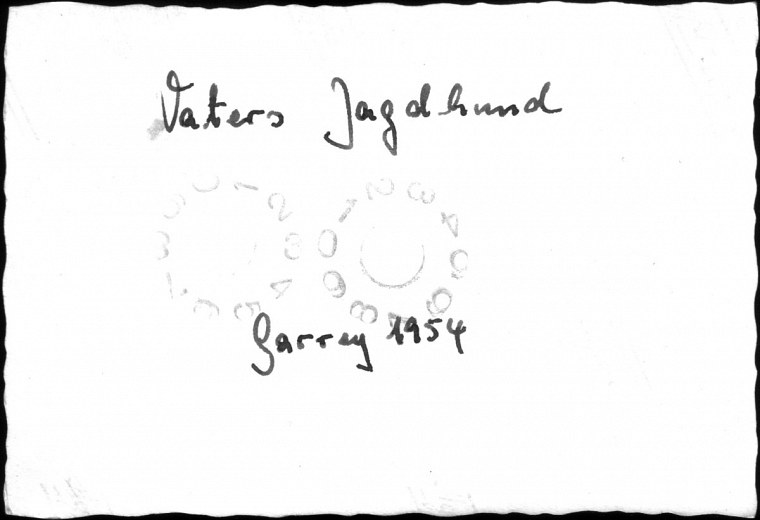 Vaters Jagdhund
Garrey 1954